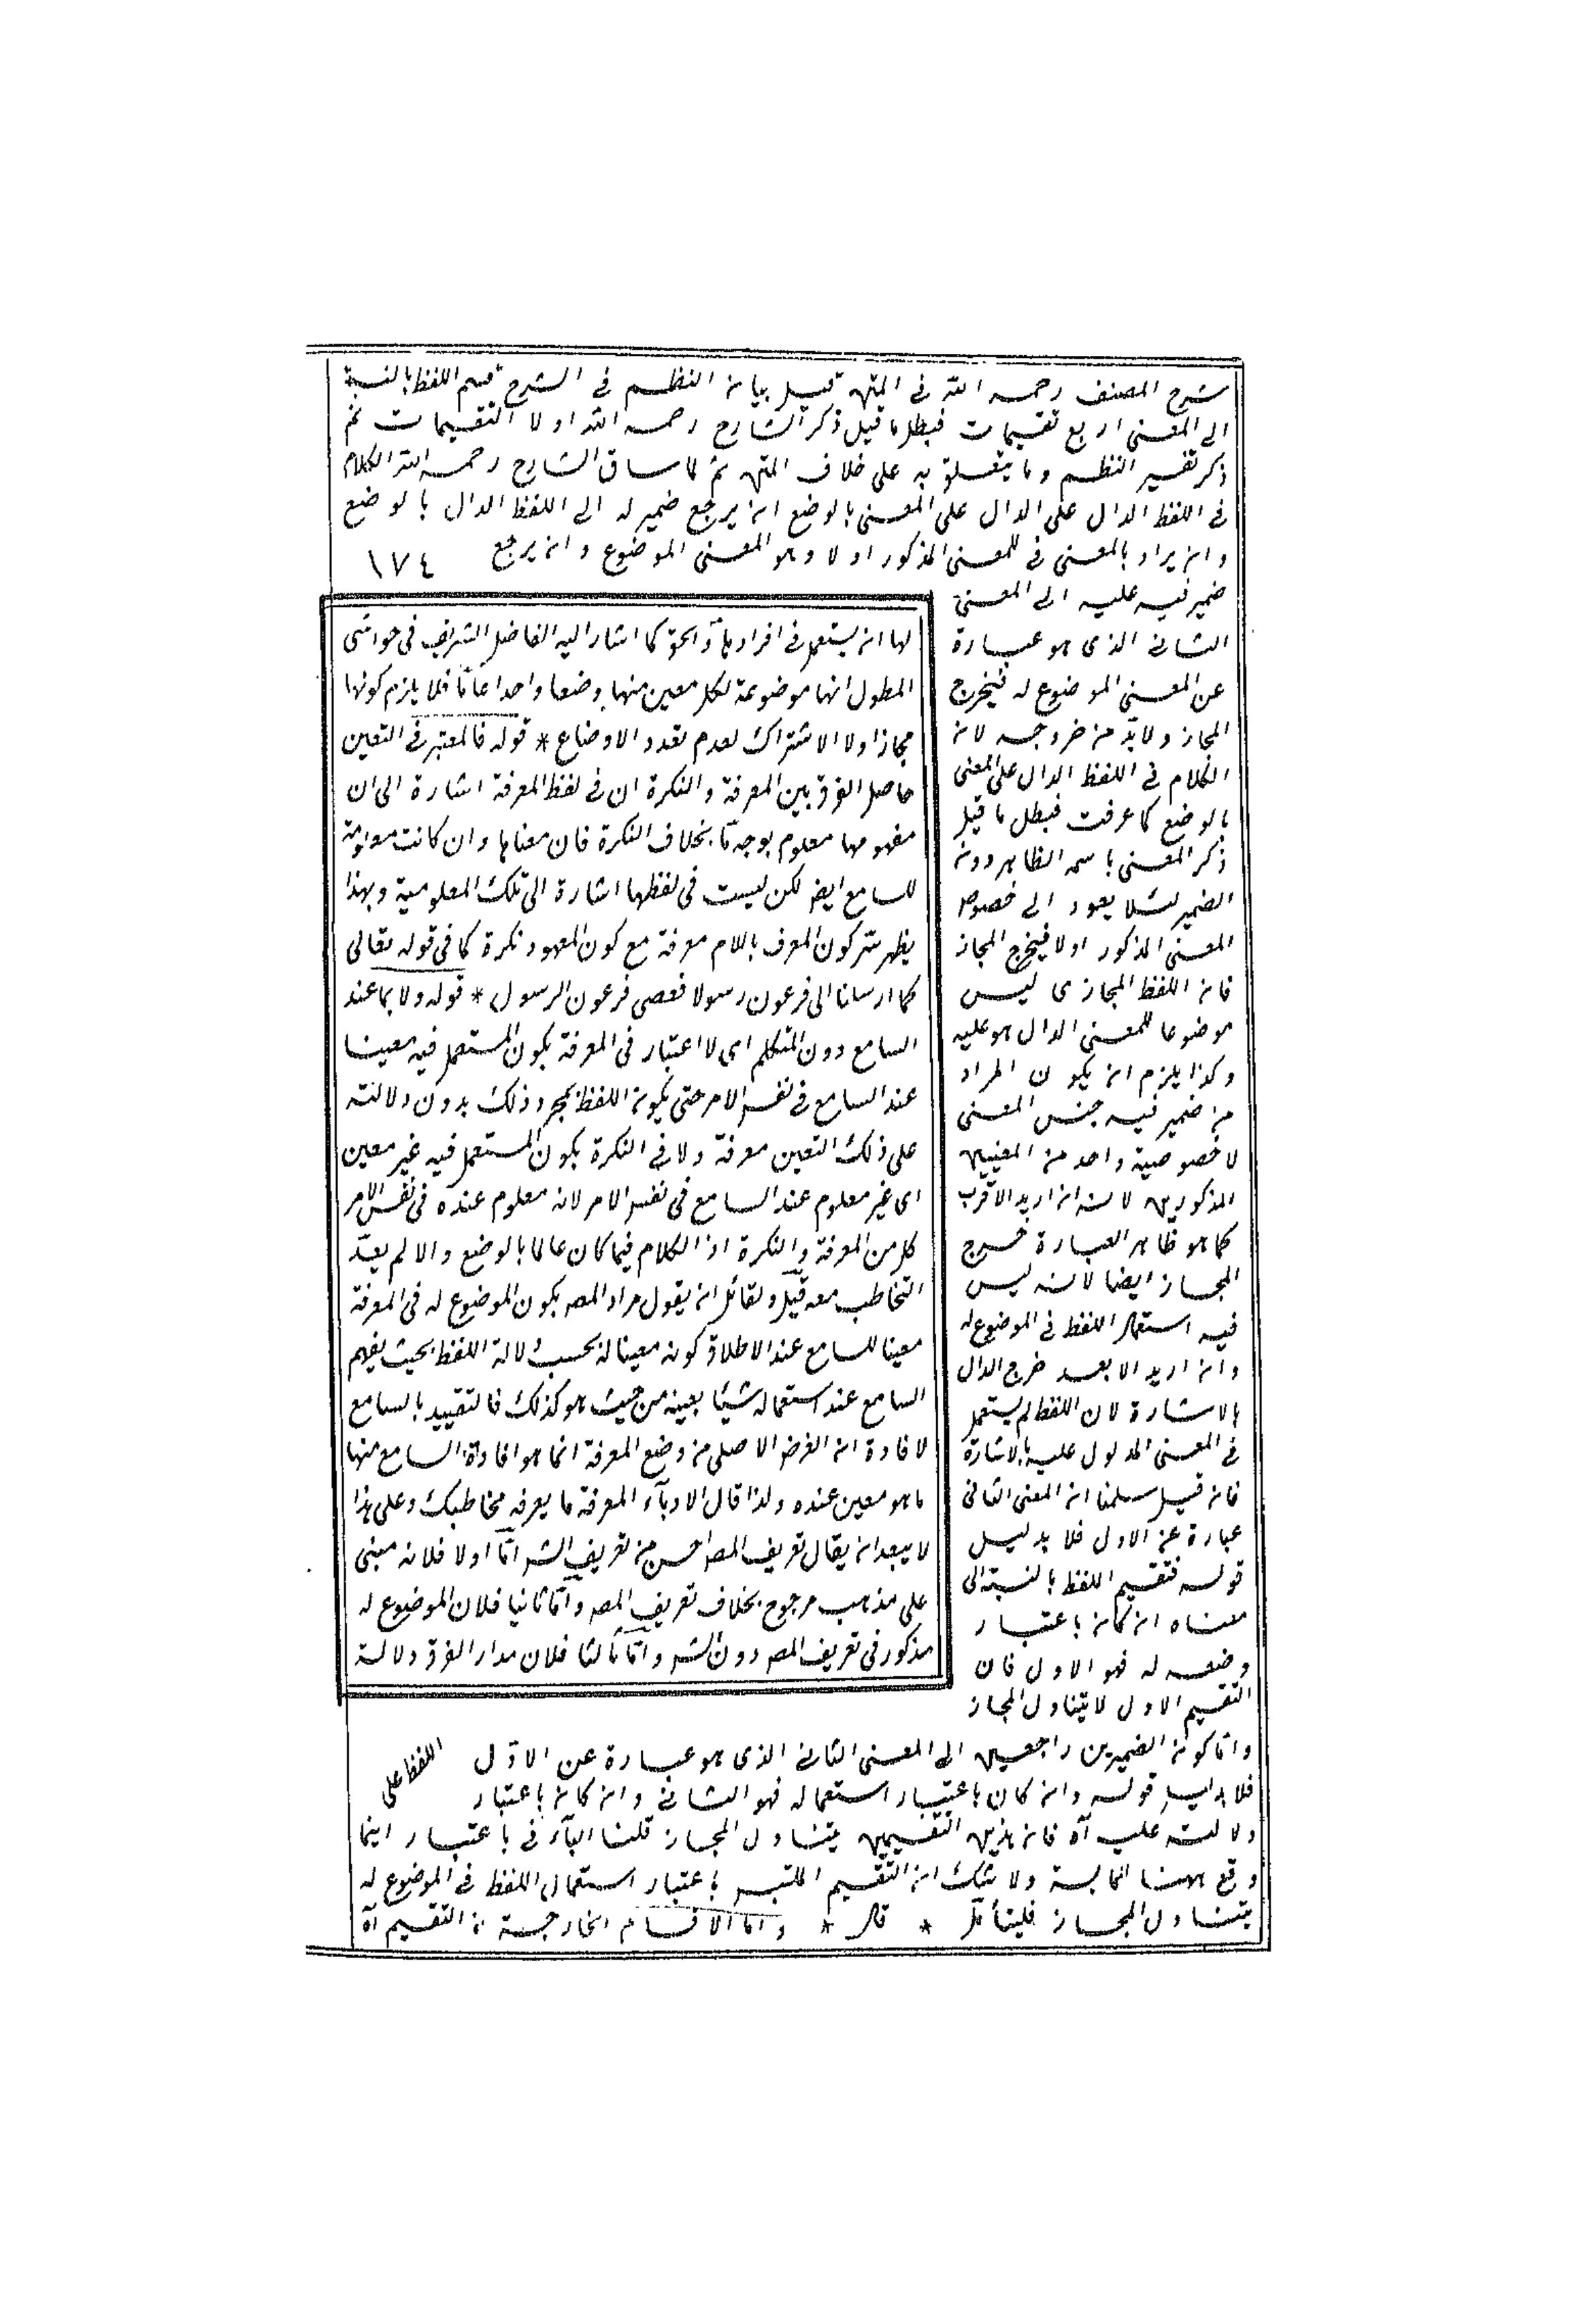 شرح المصنف رحمه الله في المتن قبيل بيان النظم في الشرح قسم اللفظ بالنسبة
الى المعنى اربع تقسيمات فبطل ما قيل ذكر الشارح رحمه الله اولا التقسيمات ثم
ذكر تفسير النظم وما يتعلق به على خلاف المتن ثم لما ساق الشارح رحمه الله الكلام
في اللفظ الدال على الدال على المعنى بالوضع ان يرجع ضمير له الى اللفظ الدال بالوضع
وان يراد بالمعنى في للمعنى المذكور اولا وهو المعنى الموضوع وان يرجع
١٧٤
ضمير فيه عليه الى المعنى
الثاني الذى هو عبارة
عن المعنى الموضوع له فيخرج
المجاز ولابد من خروجه لان
الكلام في اللفظ الدال على المعنى
بالوضع كما عرفت فبطل ما قيل
ذكر المعنى باسمه الظاهر دون
الضمير لئلا يعود الى خصوص
المعنى المذكور اولا فيخرج المجاز
فان اللفظ المجازى ليس
موضوعا للمعنى الدال هو عليه
وكذا يلزم ان يكون المراد
من ضمير فيه جنس المعنى
لا خصوصية واحد من المعنيين
المذكورين لانه ان اريد الاقرب
كما هو ظاهر العبارة خرج
المجاز ايضا لانه ليس
فيه استعمال اللفظ في الموضوع له
وان اريد الابعد خرج الدال
بالاشارة لان اللفظ لم يستعمل
في المعنى المدلول عليه بالاشارة
فان قيل سلمنا ان المعنى الثاني
عبارة عن الاول فلا بدليل
قوله فتقسيم اللفظ بالنسبة الى
معناه ان كان باعتبار
وضعه له فهو الاول فان
التقسيم الاول لا يتناول المجاز
واما كون الضميرين راجعين الى المعنى الثاني الذى هو عبارة عن الاول
فلا بدليل قوله وان كان باعتبار استعماله فهو الثاني وان كان باعتبار
دلالته عليه آه فان هذين التقسيمين يتناول المجاز قلنا الباء في باعتبار اينما
وقع ههنا للملابسة ولا شك ان التقسيم الملتبس باعتبار استعمال اللفظ في الموضوع له
يتناول المجاز فليتأمل * قال * واما الاقسام الخارجة من التقسيم آه
لها ان يستعمل في افرادها والحق كما اشار اليه الفاضل الشريف في حواشى
المطول انها موضوعة لكل معين منها وضعا واحدا عاما فلا يلزم كونها
مجازا ولا الاشتراك لعدم تعدد الاوضاع * قوله فالمعتبر في التعين
حاصل الفرق بين المعرفة والنكرة ان في لفظ المعرفة اشارة الى ان
مفهومها معلوم بوجه ما بخلاف النكرة فان معناها وان كانت معلومة
للسامع ايضا لكن ليست في لفظها اشارة الى تلك المعلومية وبهذا
يظهر سر كون المعرف باللام معرفة مع كون المعهود نكرة كما في قوله تعالى
كما ارسلنا الى فرعون رسولا فعصى فرعون الرسول * قوله ولا بما عند
السامع دون المتكلم اى لا اعتبار في المعرفة بكون المستعمل فيه معينا
عند السامع في نفس الامر حتى يكون اللفظ بمجرد ذلك بدون دلالته
على ذلك التعين معرفة ولا في النكرة بكون المستعمل فيه غير معين
اى غير معلوم عند السامع في نفس الامر لانه معلوم عنده في نفس الامر
كل من المعرفة والنكرة اذ الكلام فيما كان عالما بالوضع والا لم يعد
التخاطب معه قيل ولقائل ان يقول مراد المص بكون الموضوع له في المعرفة
معينا للسامع عند الاطلاق كونه معينا له بحسب دلالة اللفظ بحيث يفهم
السامع عند استعماله شيئا بعينه من حيث هو كذلك فالتقييد بالسامع
لافادة ان الغرض الاصلى من وضع المعرفة انما هو افادة السامع منها
ما هو معين عنده ولذا قال الادباء المعرفة ما يعرفه مخاطبك وعلى هذا
لا يبعد ان يقال تعريف المص احسن من تعريف الش اما اولا فلانه مبنى
على مذهب مرجوح بخلاف تعريف المص واما ثانيا فلان الموضوع له
مذكور في تعريف المص دون الش واما ثالثا فلان مدار الفرق دلالة
اللفظ على